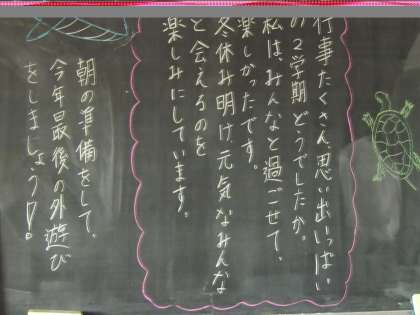 行事たくさん、思い出いっぱい
の2学期どうでしたか。
私はみんなと過ごせて、
楽しかったです。
冬休み明け元気なみんな
と会えるのを
楽しみにしています。
朝の準備をして、
今年最後の外遊び
をしましょう!!